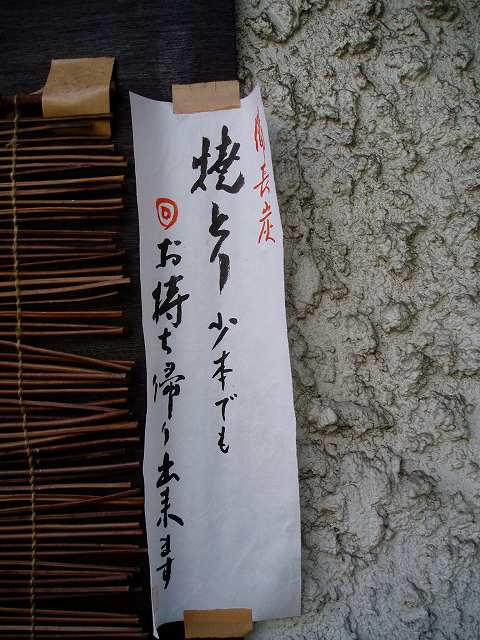 備長炭
焼とり少本でも
お持ち帰り出来ます